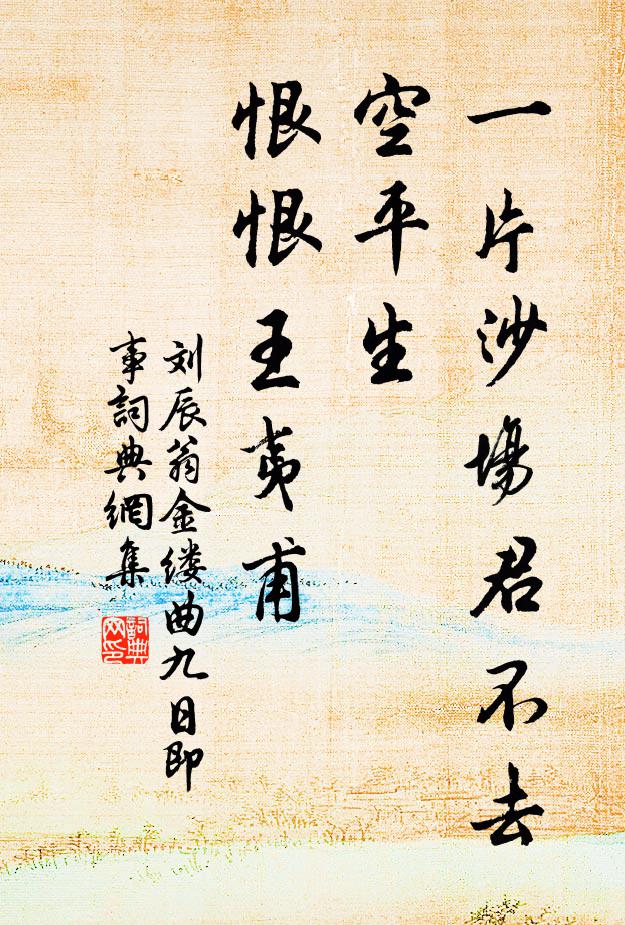 一片沙場君不去
空平生
恨恨王夷甫
刘辰翁金缕曲九日即
事詞典網集
詞典
网印